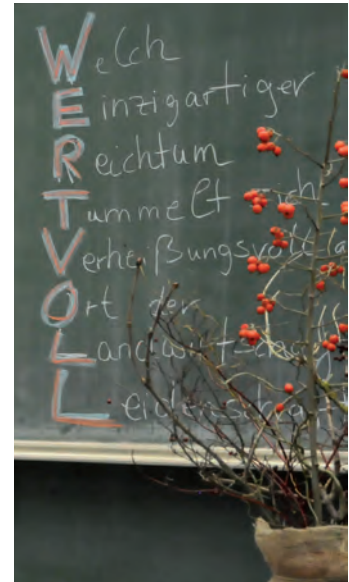 Welch
Einzigartiger
Reichtum
Tummelt sich
Verheißungsvoll
Ort der
Landwirtschaft
Leidenschaft